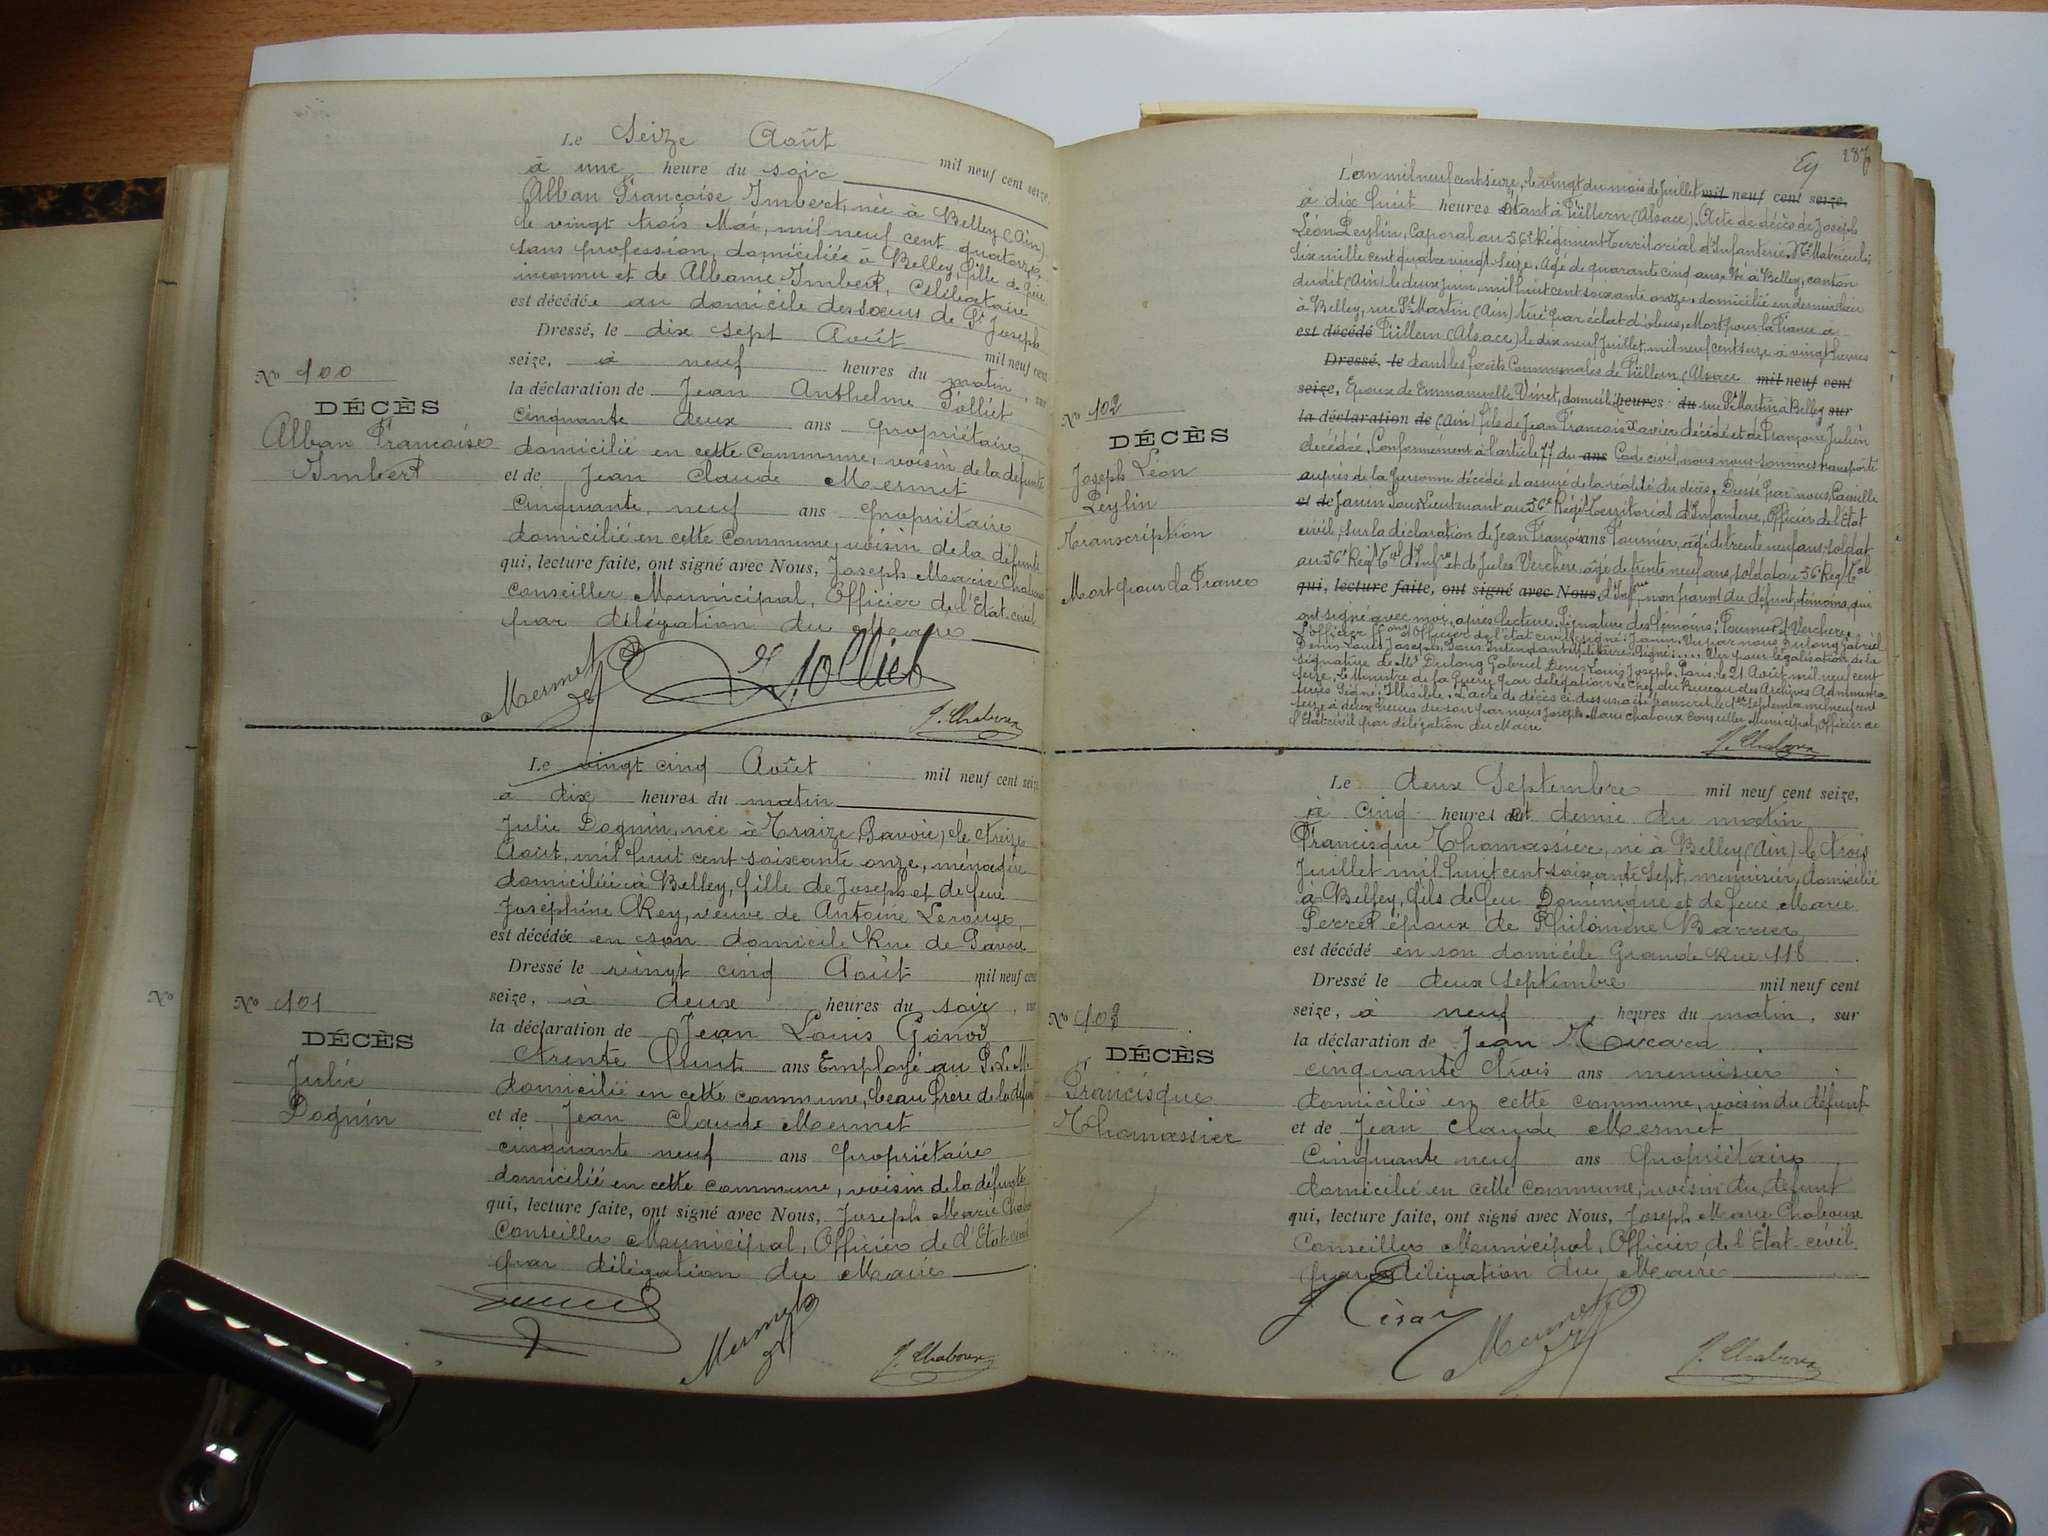 Le Seize Août mil neuf cent seize,
à une heure du soir
Alban Françoise Imbert, née à Belley (Ain)
le vingt trois Mai, mil neuf cent quatorze,
sans profession, domiciliée à Belley, fille de père
inconnu et de Albanie Imbert, Célibataire
est décédée au domicile des sœurs de St Joseph
Dressé, le dix sept Août mil neuf cent
seize, à neuf heures du matin, sur
la déclaration de Jean Anthelme Jolliet
cinquante deux ans propriétaire,
domicilié en cette Commune, voisin de la défunte
et de Jean Claude Mermet
Cinquante neuf ans propriétaire
domicilié en cette Commune, voisin de la défunte
qui, lecture faite, ont signé avec Nous, Joseph Marie Chaboux
Conseiller Municipal, Officier de l'Etat-civil
par délégation du Maire
No 100
DÉCÈS
Alban Françoise
Imbert
Mermet Jolliet
J. Chaboux
Le vingt cinq Août mil neuf cent seize
à dix heures du matin
Julie Dognin, née à Traize, Savoie, le treize
Août, mil huit cent soixante onze, ménagère
domiciliée à Belley, fille de Joseph et de feue
Joséphine Rey, veuve de Antoine Lerouge,
est décédée en son domicile Rue de Savoie
Dressé le vingt cinq Août mil neuf cent
seize, à deux heures du soir, sur
la déclaration de Jean Louis
trente huit ans Employé au P.L.M.
domicilié en cette commune, beau frère de la défunte
et de Jean Claude Mermet
cinquante neuf ans propriétaire
domicilié en cette commune, voisin de la défunte
qui, lecture faite, ont signé avec Nous, Joseph Marie Chaboux
Conseiller Municipal, Officier de l'Etat-civil
par délégation du Maire
No 101
DÉCÈS
Julie
Dognin
No
Mermet J. Chaboux
287
L'an mil neuf cent seize, le vingt du mois de Juillet mil neuf cent seize.
à dix huit heures étant à (Alsace). Acte de décès de Joseph
Léon Peylin, Caporal au 56e Régiment Territorial d'Infanterie, No Matricule
Six mille cent quatre vingt seize. Agé de quarante cinq ans. Né à Belley, canton
dudit (Ain) le deux juin, mil huit cent soixante onze, domicilié en dernier lieu
à Belley, rue St Martin (Ain) tué par éclat d'obus, Mort pour la France à
est décédé (Alsace) le dix neuf Juillet, mil neuf cent seize à vingt heures
Dressé, le dans les forêts Communales de (Alsace mil neuf cent
seize, Epoux de Emmanuelle Vinet, domicilié heures du rue St Martin à Belley sur
la déclaration de (Ain) fils de Jean François Xavier décédé et de Françoise Julien
décédée, Conformément à l'article 77 du ans Code civil, nous nous sommes transporté
auprès de la personne décédée et assuré de la réalité du décès. Dressé par nous, Camille
et de Janin Sous Lieutenant au 56e Régt Territorial d'Infanterie, Officier de l'Etat
civil, sur la déclaration de Jean François ans Fournier, âgé de trente neuf ans, soldat
au 56e Régt Tal d'Infrie et de Jules Verchère, âgé de trente neuf ans, soldat au 56e Régt Tal
qui, lecture faite, ont signé avec Nous, d'Infrie, non parent du défunt, témoins, qui
ont signé avec moi, après lecture. Signature des témoins: Fournier, Verchère.
L'officier d'Officier de l'état civil signé: Janin. Vu par nous Dulong Gabriel
Denis Louis Joseph, Sous Intendant Militaire. Signé: .... Vu pour légalisation de la
signature de Mr Dulong Gabriel Denis Louis Joseph. Paris, le 21 Août mil neuf cent
seize, Le Ministre de la Guerre par délégation Le Chef du Bureau des Archives Administra-
tives Signé: Illisible. L'acte de décès ci-dessus a été transcrit le 1er Septembre mil neuf cent
seize à deux heures du soir par nous Joseph Marie Chaboux Conseiller Municipal, Officier de
l'Etat civil par délégation du Maire
No 102
DÉCÈS
Joseph Léon
Peylin
Transcription
Mort pour la France
J. Chaboux
Le deux Septembre mil neuf cent seize,
à cinq heures et demie du matin
Francisque Thomassier, né à Belley (Ain) le trois
Juillet mil huit cent soixante sept, menuisier, domicilié
à Belley, fils de feu Dominique et de feue Marie
Perret époux de Philomène Barrier,
est décédé en son domicile Grande Rue 118
Dressé le deux Septembre mil neuf cent
seize, à neuf heures du matin, sur
la déclaration de Jean
cinquante trois ans menuisier
domicilié en cette commune, voisin du défunt
et de Jean Claude Mermet
Cinquante neuf ans propriétaire
domicilié en cette commune, voisin du défunt
qui, lecture faite, ont signé avec Nous, Joseph Marie Chaboux
Conseiller Municipal, Officier de l'Etat-civil
par délégation du Maire
No 103
DÉCÈS
Francisque
Thomassier
Mermet J. Chaboux